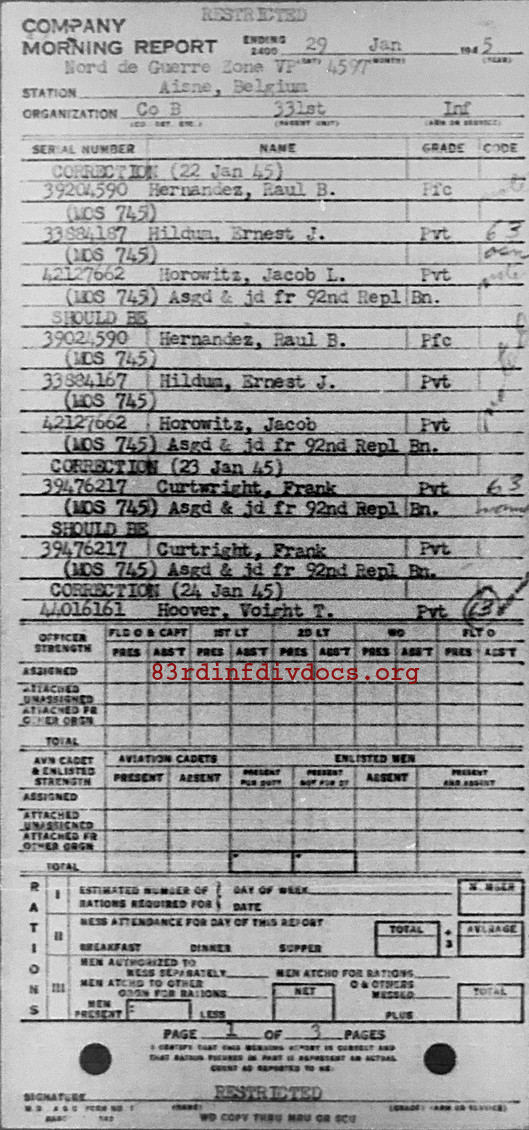 RESTRICTED
COMPANY
MORNING REPORT ENDING 2400 29 Jan 1945
(DAY) (MONTH) (YEAR)
Nord de Guerre Zone VP 4597
STATION Aisne, Belgium
ORGANIZATION Co B 331st Inf
(CO. DET. ETC.) (PARENT UNIT) (ARM OR SERVICE)
SERIAL NUMBER NAME GRADE CODE
CORRECTION (22 Jan 45)
39204590 Hernandez, Raul B. Pfc
(MOS 745)
33884187 Hildum, Ernest J. Pvt 63
(MOS 745)
42127662 Horowitz, Jacob L. Pvt
(MOS 745) Asgd & jd fr 92nd Repl Bn.
SHOULD BE
39024590 Hernandez, Raul B. Pfc
(MOS 745)
33884167 Hildum, Ernest J. Pvt
(MOS 745)
42127662 Horowitz, Jacob Pvt
(MOS 745) Asgd & jd fr 92nd Repl Bn.
CORRECTION (23 Jan 45)
39476217 Curtwright, Frank Pvt 63
(MOS 745) Asgd & jd fr 92nd Repl Bn.
SHOULD BE
39476217 Curtright, Frank Pvt
(MOS 745) Asgd & jd fr 92nd Repl Bn.
CORRECTION (24 Jan 45)
44016161 Hoover, Voight T. Pvt 63
OFFICER STRENGTH FLD O & CAPT 1ST LT 2D LT WO FLT O
PRES ABS'T PRES ABS'T PRES ABS'T PRES ABS'T PRES ABS'T
ASSIGNED
83rdinfdivdocs.org
ATTACHED UNASSIGNED
ATTACHED FR OTHER ORGN
TOTAL
AVN CADET & ENLISTED STRENGTH AVIATION CADETS ENLISTED MEN
PRESENT ABSENT PRESENT FOR DUTY PRESENT NOT FOR DY ABSENT PRESENT AND ABSENT
ASSIGNED
ATTACHED UNASSIGNED
ATTACHED FR OTHER ORGN
TOTAL
RATIONS
I ESTIMATED NUMBER OF RATIONS REQUIRED FOR DAY OF WEEK DATE NUMBER
II MESS ATTENDANCE FOR DAY OF THIS REPORT TOTAL ÷ 3 AVERAGE
BREAKFAST DINNER SUPPER
III MEN AUTHORIZED TO MESS SEPARATELY MEN ATCHD FOR RATIONS
MEN ATCHD TO OTHER ORGN FOR RATIONS NET O & OTHERS MESSED TOTAL
MEN PRESENT LESS PLUS
PAGE 1 OF 3 PAGES
I CERTIFY THAT THIS MORNING REPORT IS CORRECT AND
THAT RATION FIGURES IN PART III REPRESENT AN ACTUAL
COUNT AS REPORTED TO ME:
RESTRICTED
SIGNATURE
(NAME) (GRADE) (ARM OR SERVICE)
W.D. A G O FORM NO. 1
WD COPY THRU MRU OR SCU